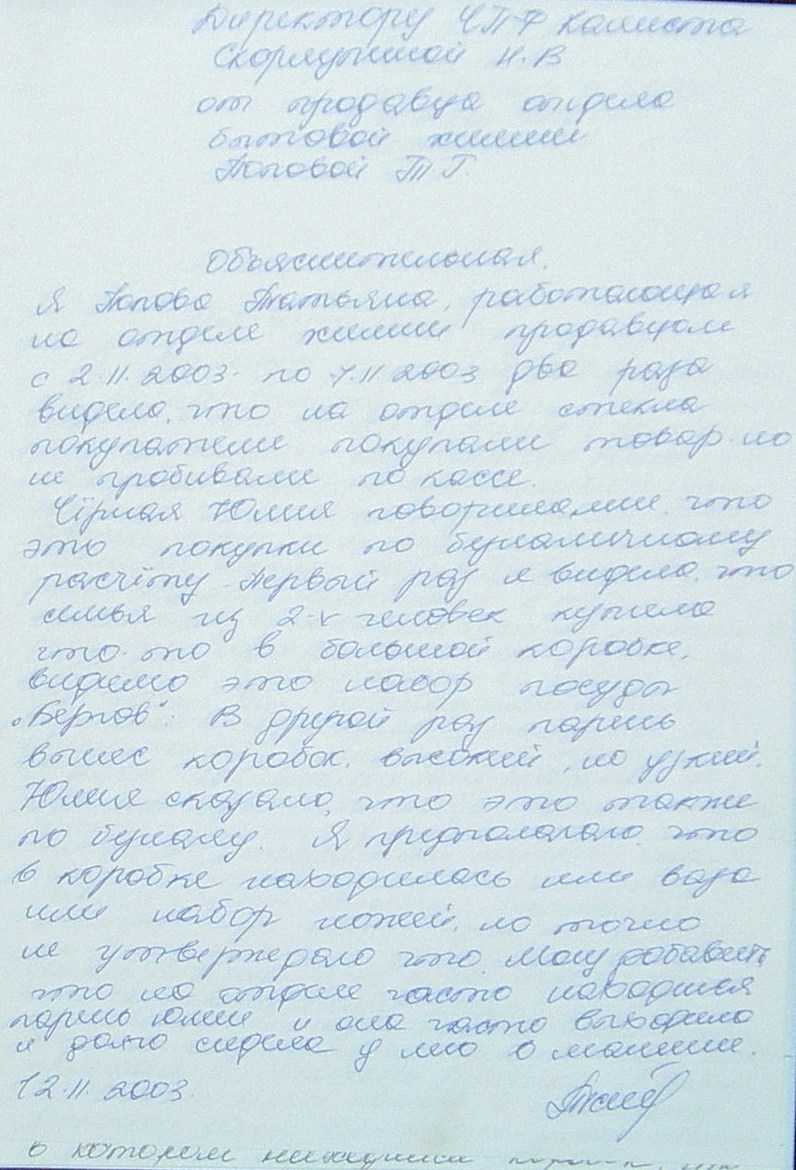 Директору ЧПФ Калиста
Скорлупиной Н.В
от продавца отдела
бытовой химии
Поповой Т.Г.
Объяснительная.
Я Попова Татьяна, работающая
на отделе химии продавцом
с 2.11.2003. по 7.11.2003 два раза
видела, что на отделе стекла
покупатели покупали товар но
не пробивали по кассе.
Чёрная Юлия говорила, что
это покупки по безналичному
расчёту. Первый раз я видела, что
семья из 2-х человек купила
что-то в большой коробке,
видимо это набор посуды
„Бергов". В другой раз парень
вынес коробок, высокий, но узкий.
Юлия сказала, что это также
по безналу. Я предполагаю что
в коробке находилась или ваза
или набор ножей, но точно
не утверждаю что. Могу добавить
что на отделе часто находился
парень Юлии и она часто выходила
и долго сидела у него в машине.
12.11.2003.
в котором